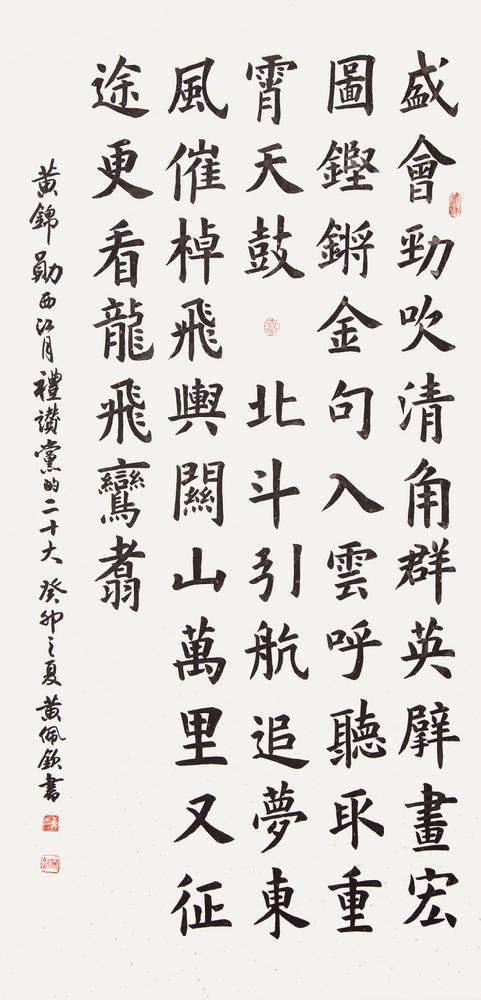 盛會勁吹清角群英擘畫宏
圖鏗鏘金句入雲呼聽取重
霄天鼓 北斗引航追夢東
風催棹飛輿關山萬里又征
途更看龍飛鸞翥
黃錦勛西江月禮讚黨的二十大 癸卯之夏黃佩欽書